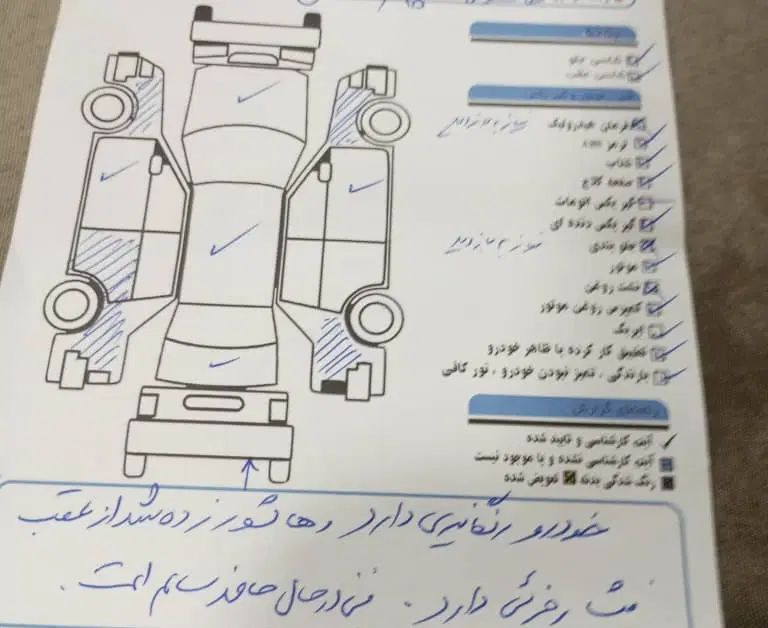 شاسی جلو
شاسی عقب
فرمان هیدرولیک نیاز به بازدید
ترمز ABS
شتاب
صفحه کلاچ
گیر بکس اتومات
گیر بکس دنده ای
جلو بندی نیاز به بازدید
موتور
نشت روغن
کمپرس روغن موتور
ایربگ
تطبیق کار کرده با ظاهر خودرو
بارندگی ، تمیز نبودن خودرو ، نور کافی
راهنمای گزارش
آیتم کارشناسی و تایید شده
آیتم کارشناسی نشده و یا موجود نیست
رنگ شدگی بدنه تعویض شده
خودرو رنگ‌پذیری دارد زده شد از عقب
نشت جزئی دارد . فنی در حال حاضر سالم است .